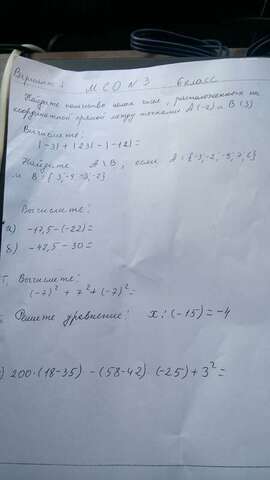 Вариант 1 МСО №3 6 класс
Найдите количество целых чисел, расположенных на
координатной прямой между точками А(-2) и В(3)
Вычислите:
|-3| + |23| - |-12| =
Найдите А \ В, если
и В
Вычислите:
а) -17,5 - (-22) =
б) -42,5 - 30 =
Вычислите:
(-7)² + 7² + (-7)² =
Решите уравнение: x : (-15) = -4
) 200 · (18-35) - (58-42) · (-25) + 3² =